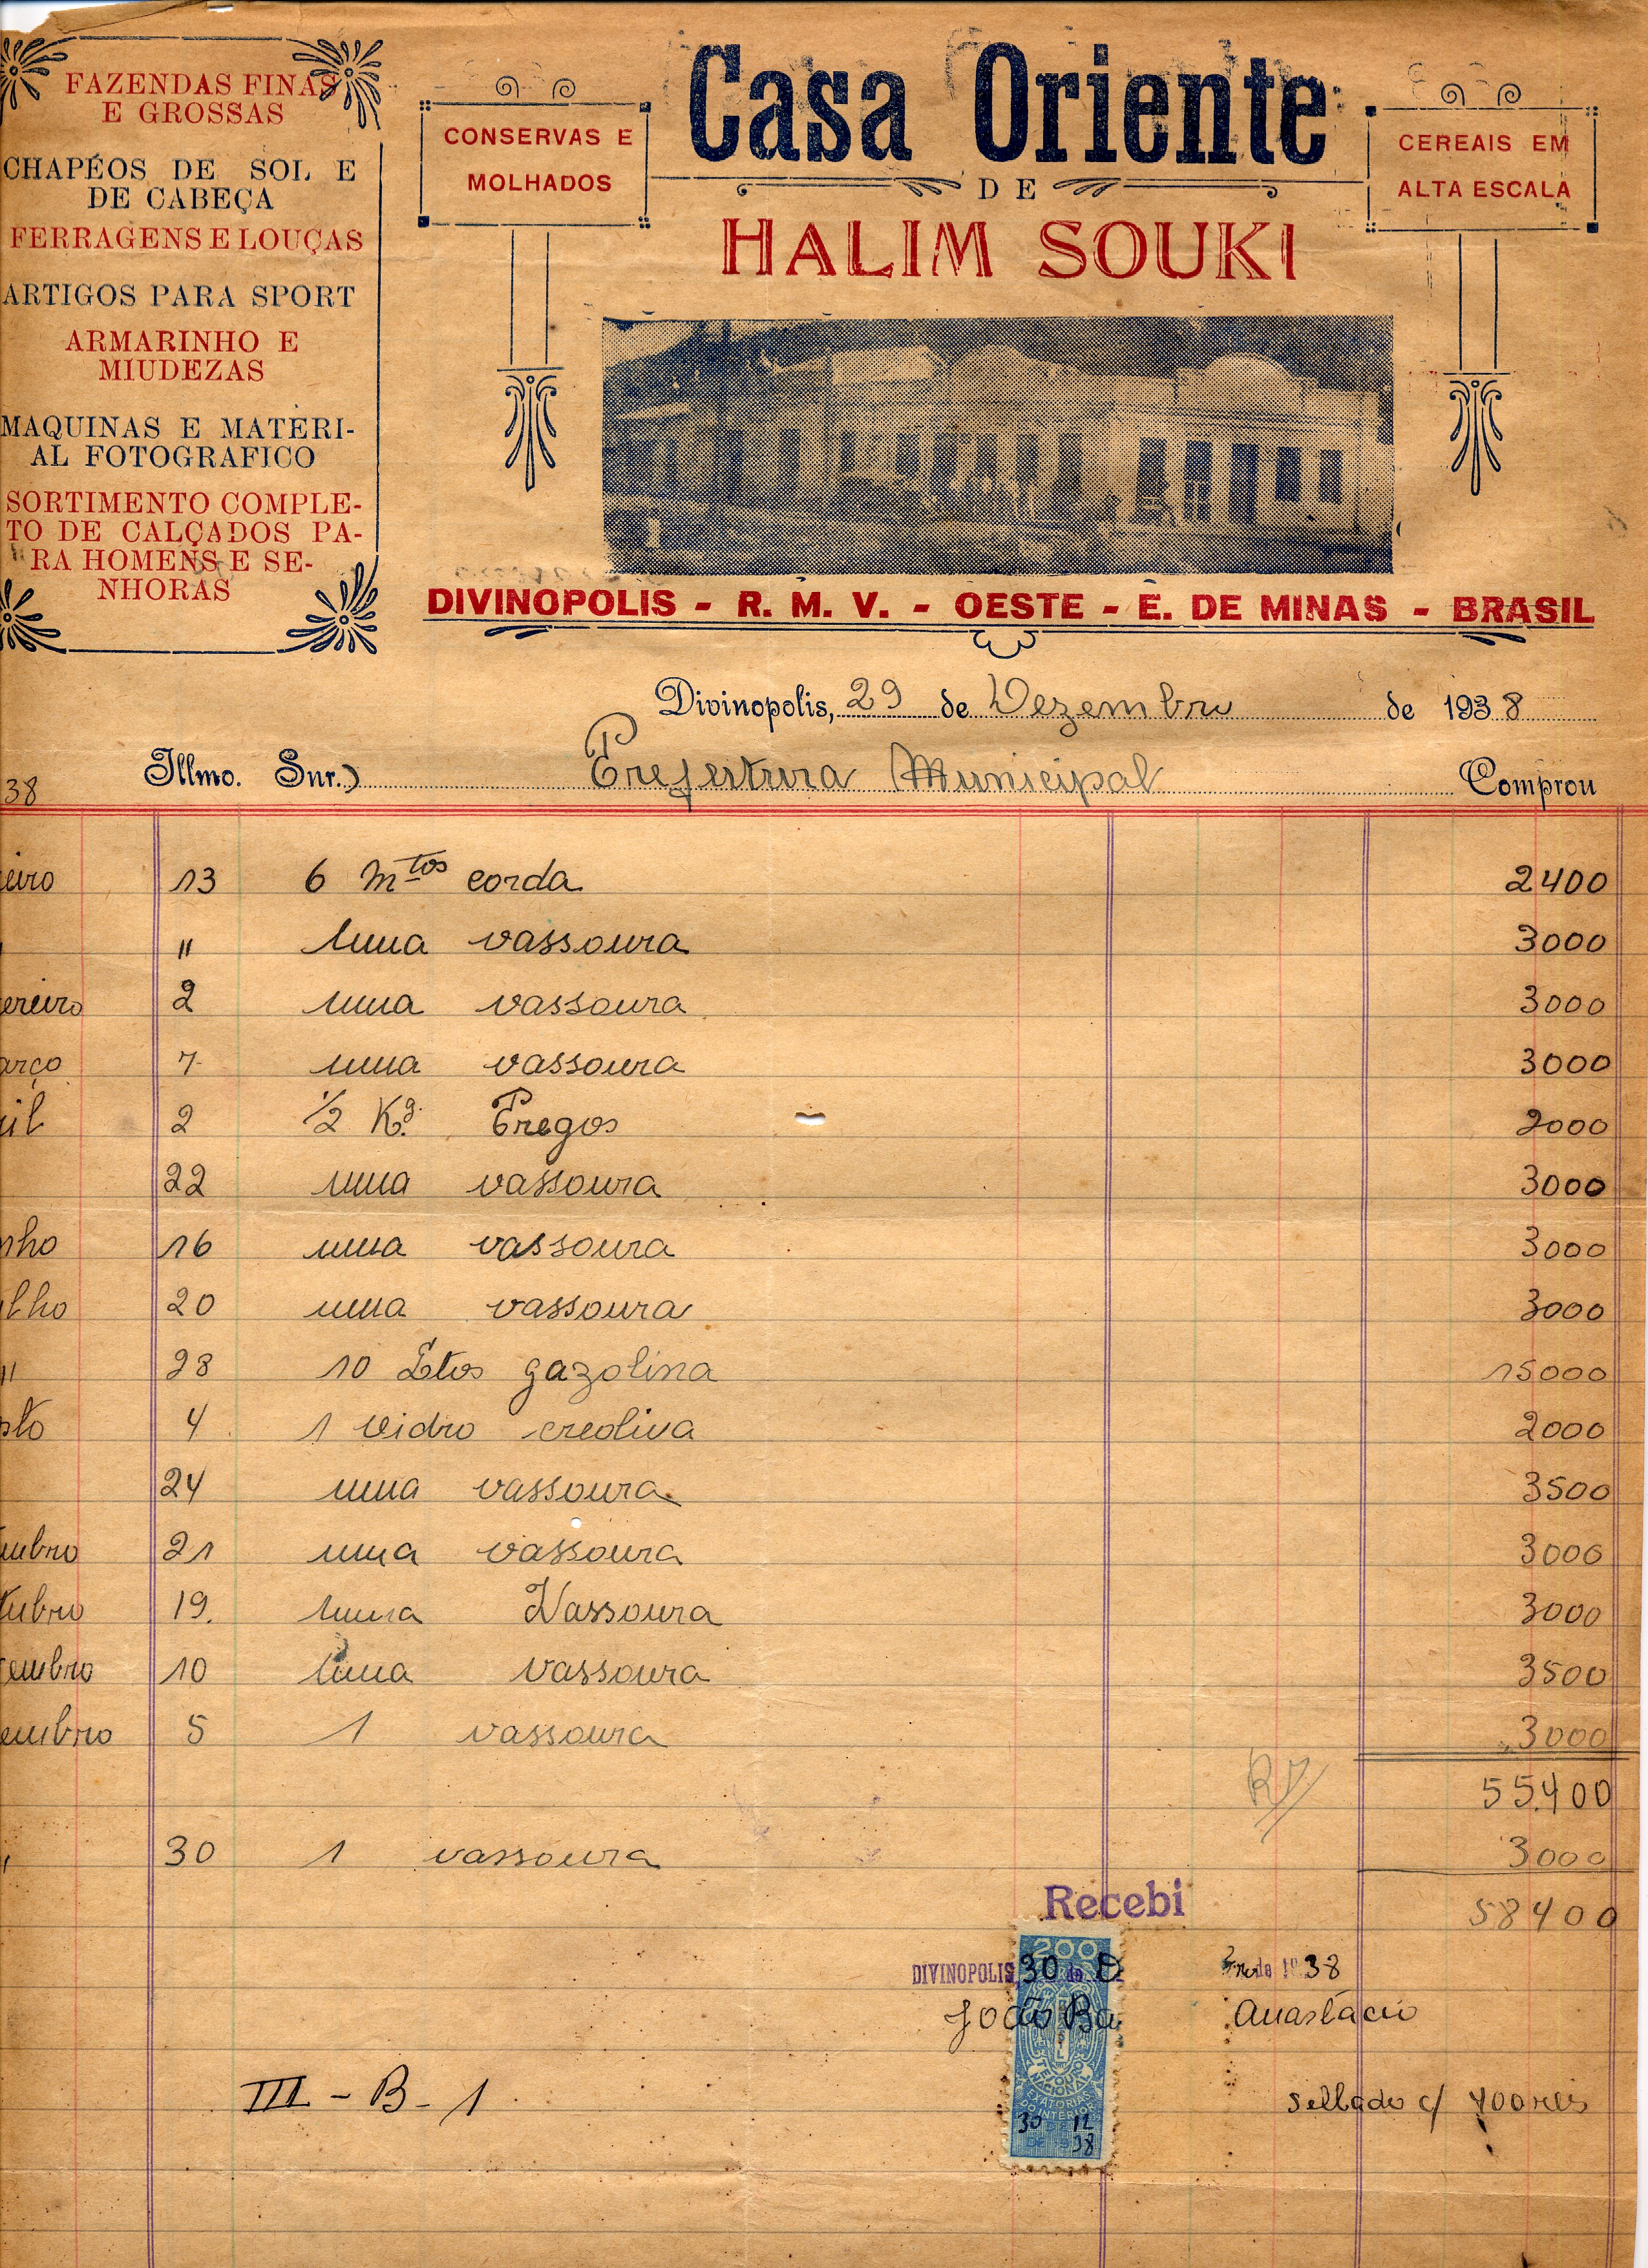 FAZENDAS FINAS
E GROSSAS
CHAPÉOS DE SOL E
DE CABEÇA
FERRAGENS E LOUÇAS
ARTIGOS PARA SPORT
ARMARINHO E
MIUDEZAS
MAQUINAS E MATERI-
AL FOTOGRAFICO
SORTIMENTO COMPLE-
TO DE CALÇADOS PA-
RA HOMENS E SE-
NHORAS
CONSERVAS E
MOLHADOS
Casa Oriente
DE
HALIM SOUKI
CEREAIS EM
ALTA ESCALA
DIVINOPOLIS - R. M. V. - OESTE - E. DE MINAS - BRASIL
Divinopolis, 29 de Dezembro de 1938
38 Illmo. Snr.) Prefeitura Municipal Comprou
eiro 13 6 Mtos corda 2400
" Uma vassoura 3000
ereiro 2 uma vassoura 3000
arço 7 uma vassoura 3000
il 2 1/2 Kg. Pregos 2000
22 uma vassoura 3000
nho 16 uma vassoura 3000
lho 20 uma vassoura 3000
" 28 10 Ltos gazolina 15000
sto 4 1 vidro creolina 2000
24 uma vassoura 3500
mbro 21 uma vassoura 3000
tubro 19. uma Vassoura 3000
embro 10 uma vassoura 3500
embro 5 1 vassoura 3000
55.400
" 30 1 vassoura 3000
58400
Recebi
200
DIVINOPOLIS, 30 de D 38
João Ba Anastacio
TESOURO
NACIONAL
EXATORIAS
DO INTERIOR
30 12
DE 38
III - B - 1
Sellado c/ 400 reis